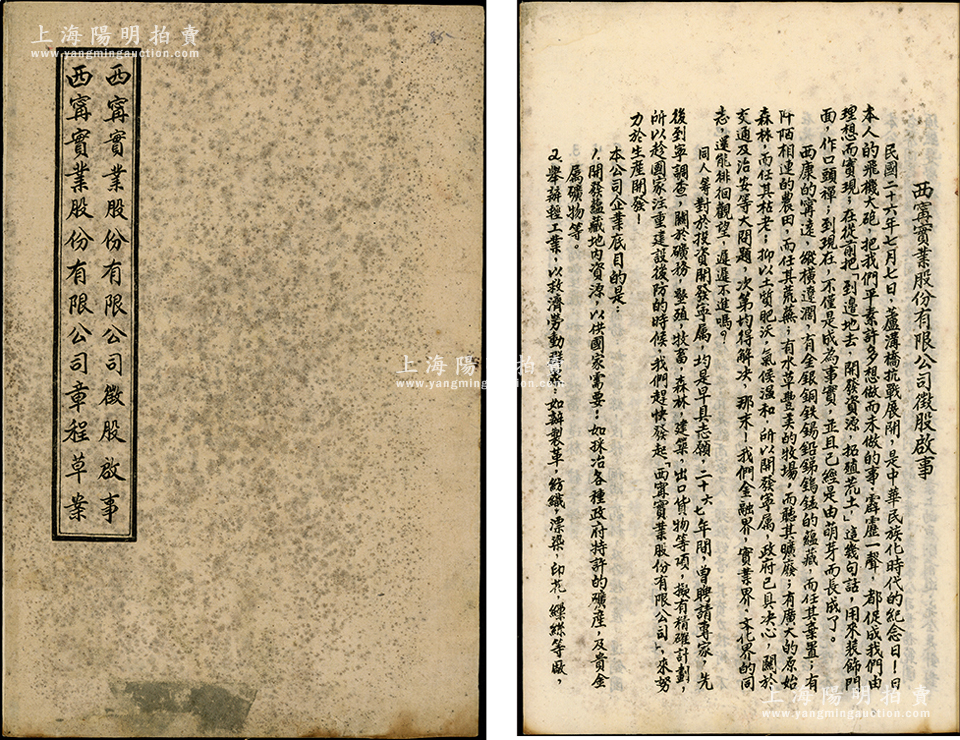 上海陽明拍賣
www.yangmingauction.com
西寗實業股份有限公司徵股啟事
西寗實業股份有限公司章程草案
西寗實業股份有限公司徵股啟事
民國二十六年七月七日，蘆溝橋抗戰展開，是中華民族化時代的紀念日！日
本人的飛機大砲，把我們平素許多想做而未做的事，霹靂一聲，都促成我們由
理想而實現；在從前把「到邊地去，開發資源，拓殖荒土，」這幾句話，用來裝飾門
面，作口頭禪；到現在，不僅是成為事實，並且已經是由萌芽而長成了。
西康的寗遠，縱橫遼濶，有金銀銅鉄錫鉛銻鎢錳的蘊藏，而任其棄置；有
阡陌相連的農田，而任其荒蕪；有水草豐美的牧場，而聽其曠廢；有廣大的原始
森林，而任其枯老；抑以土質肥沃，氣候溫和，所以開發寧屬，政府已具決心，關於
交通及治安等大問題，次第均得解決，那末！我們金融界，實業界，文化界的同
志，還能徘徊觀望，遲遲不進嗎？
同人等對於投資開發寧屬，均是早具志願，二十六七年間，曾聘請專家，先
後到寧調查，關於礦務，墾殖，牧畜，森林，建築，出口貨物等項，擬有精確計劃，
所以趁國家注重建設後防的時候，我們趕快發起「西寗實業股份有限公司」，來努
力於生產開發！
本公司企業底目的是：
1. 開發蘊藏地內資源，以供國家需要：如採冶各種政府特許的礦產，及貴金
屬礦物等。
2. 舉辦輕工業，以救濟勞動群衆，如辦製革，紡織，漂染，印花，繅絲等廠，
上海陽明拍賣
www.yangmingauction.com
上海陽明拍賣
www.yangmingauction.com